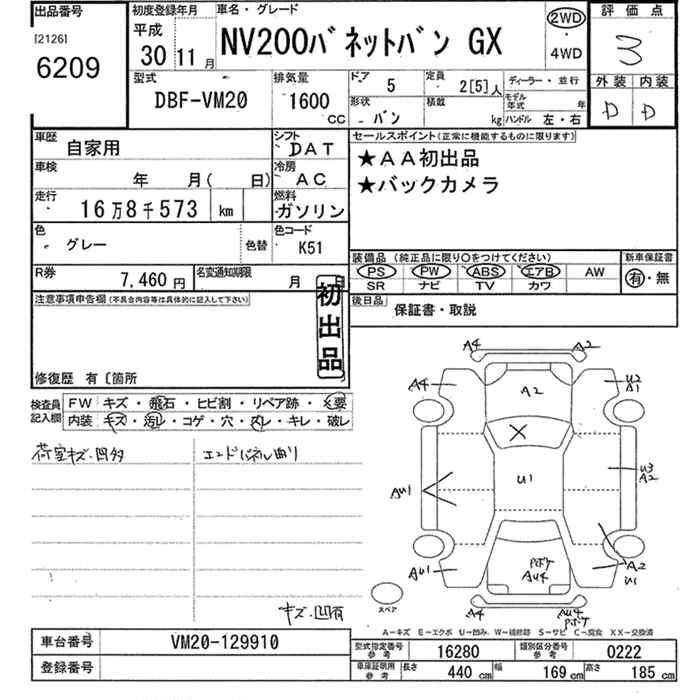 出品番号
[2126]
6209
初度登録年月
平成
30 11月
車名・グレード
NV200バネットバン GX
2WD
・
4WD
評価点
3
外装 内装
D D
型式
DBF-VM20
排気量
1600
CC
ドア
5
定員
2[5]人
ディーラー・並行
形状
バン
積載
kg
モデル年式 年
ハンドル 左・右
車歴
自家用
シフト
DAT
車検
年 月( 日)
冷房
AC
走行
16万8千573 km
燃料
ガソリン
色
グレー
色替
色コード
K51
R券
7,460円
名変通知期限
月 日
セールスポイント(正常に機能するものに限ります)
★AA初出品
★バックカメラ
装備品(純正品に限り○をつけてください)
PS PW ABS エアB AW
SR ナビ TV カワ
新車保証書
有・無
後日品
保証書・取説
注意事項申告欄(不具合内容等は具体的に記入して下さい)
初出品
修復歴 有〔箇所
検査員記入欄
FW キズ・飛石・ヒビ割・リペア跡・X要
内装 キズ・汚レ・コゲ・穴・スレ・キレ・破レ
荷室キズ・凹多
エンドパネル曲り
キズ・凹有
A4 A2
A4 A2 U2 A1
X
U1
AU1 U3 A2
AU1 Pボケ AU4 A2 U1
A4 AU4 Pボケ
スペア
A-キズ E-エクボ U-凹み W-補修跡 S-サビ C-腐食 XX-交換済
車台番号
VM20-129910
登録番号
型式指定番号参考
16280
類別区分番号参考
0222
車庫証明用参考
長さ 440cm 幅 169cm 高さ 185cm